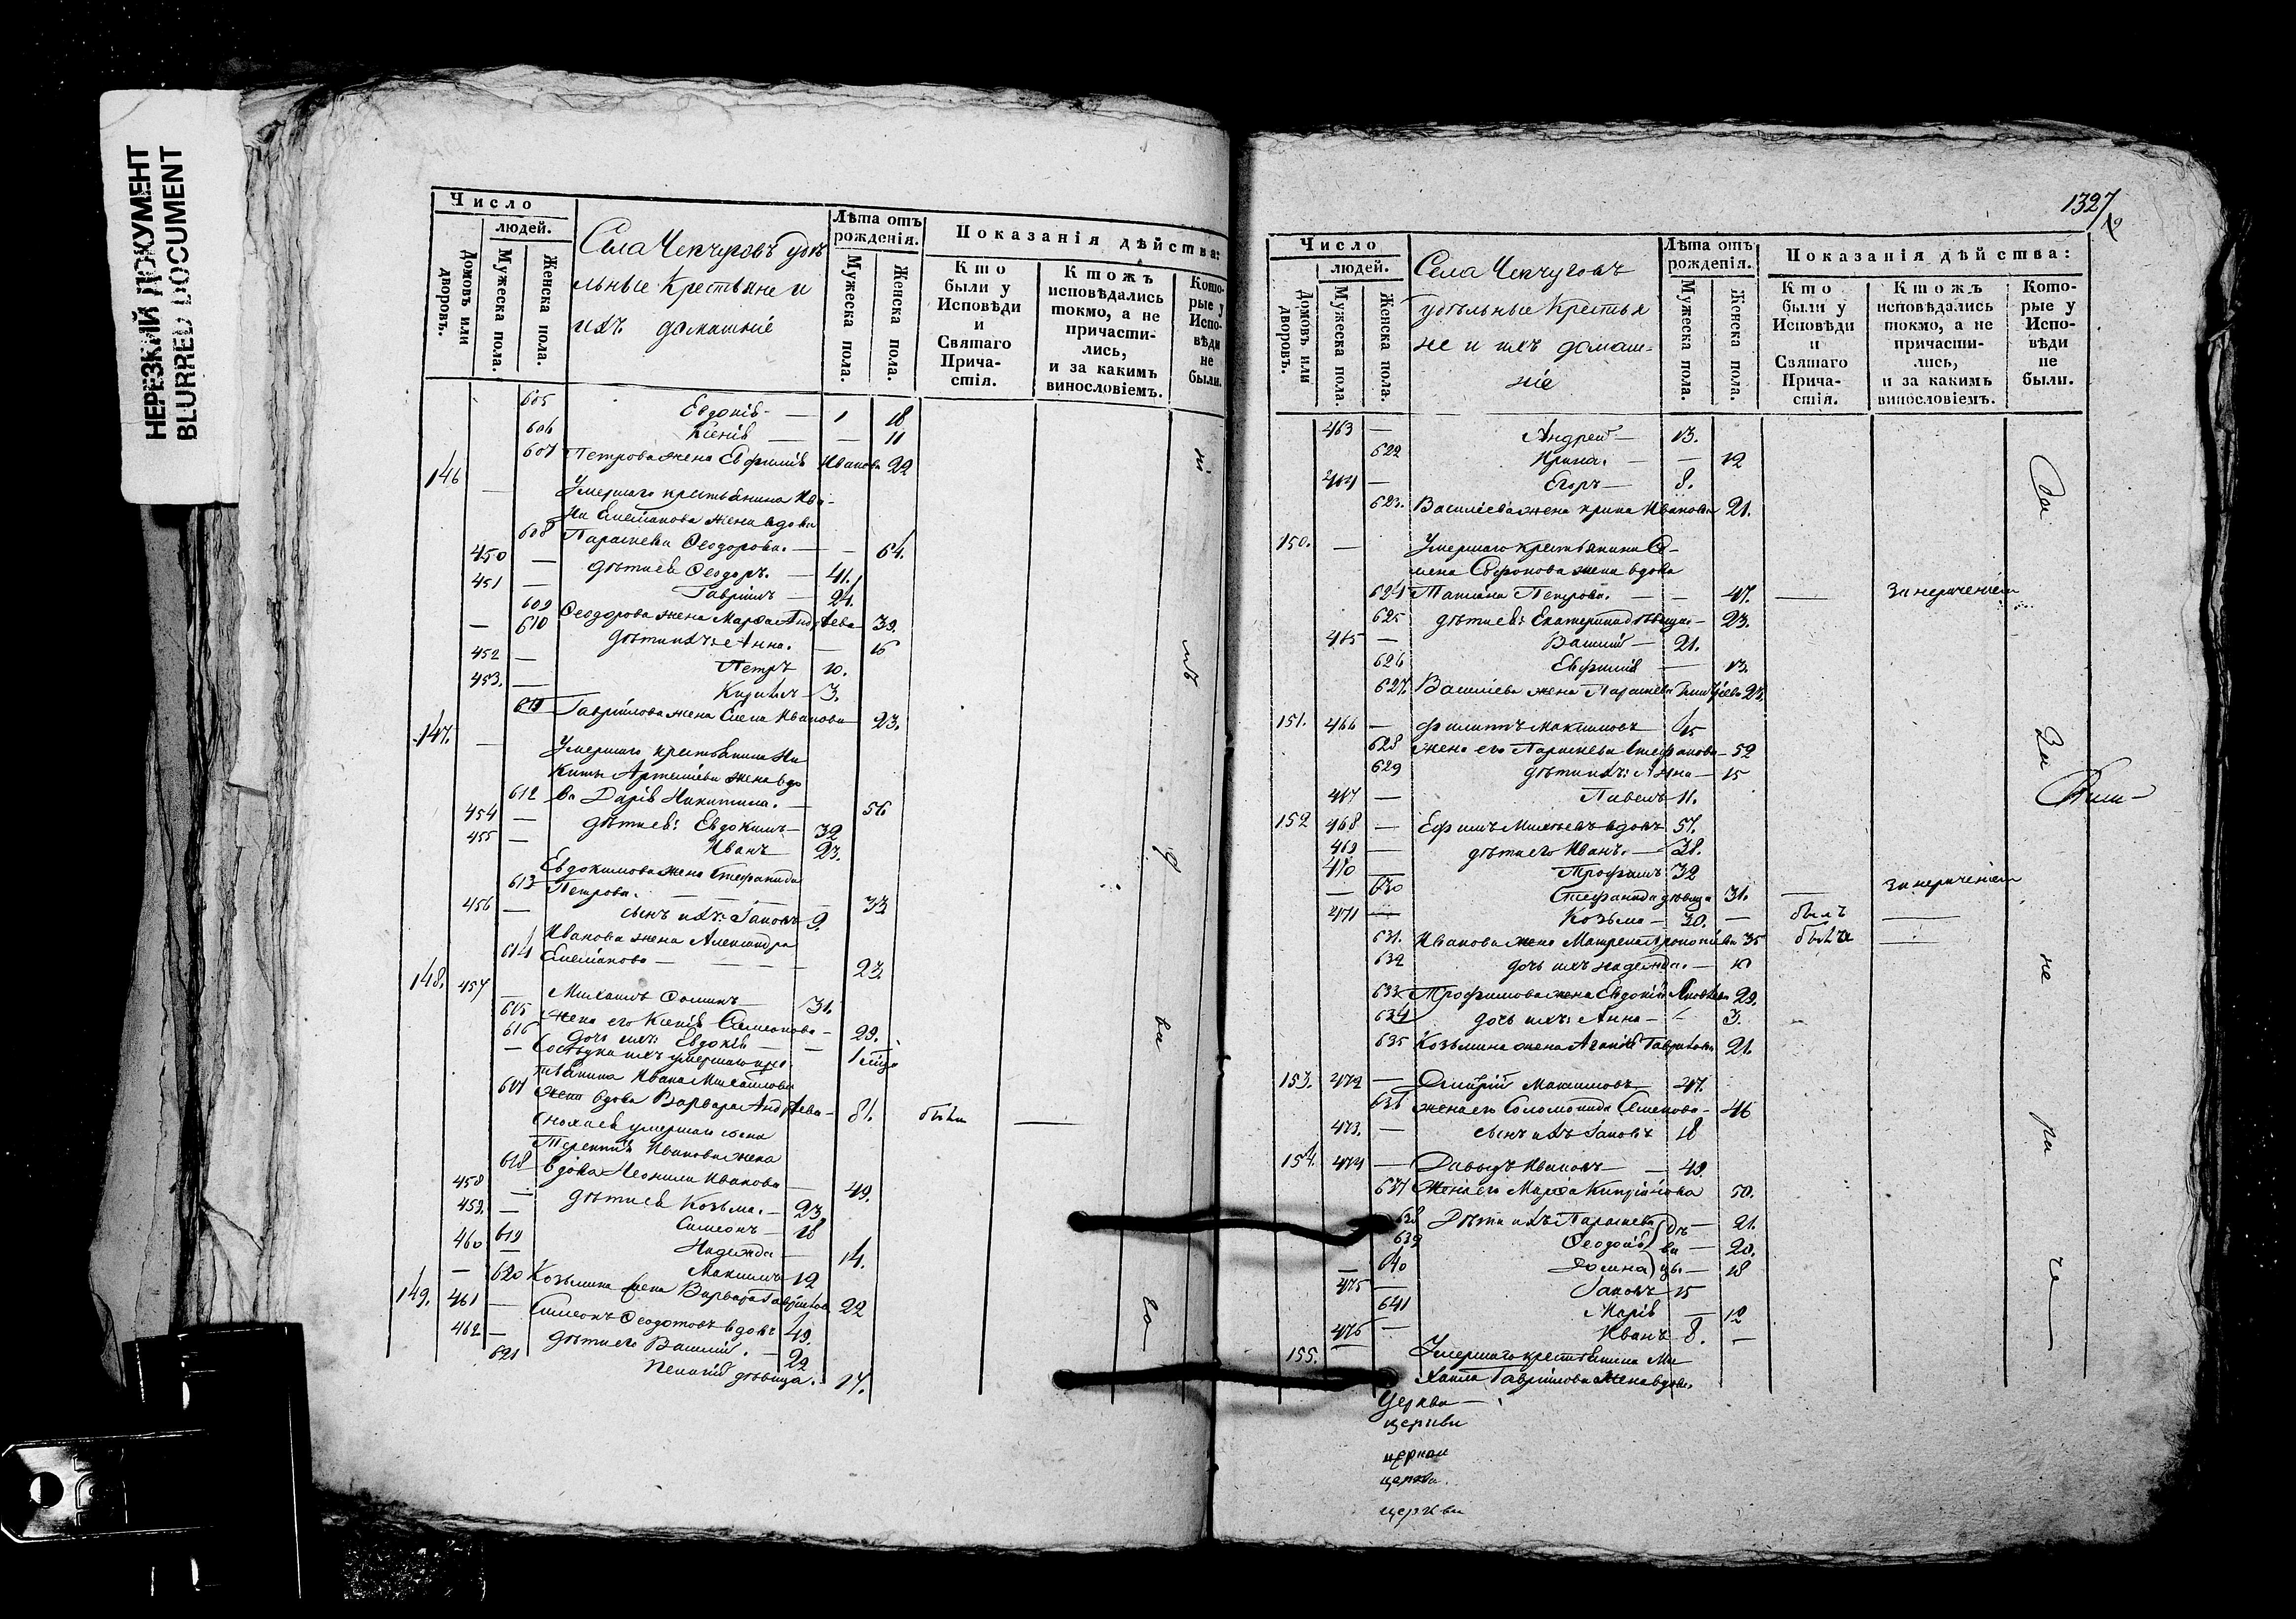 НЕРЕЗКИЙ ДОКУМЕНТ
BLURRED DOCUMENT
Число
людей.
Домовъ или дворовъ.
Мужеска пола.
Женска пола.
Села Чепчуговъ удѣ
льные Крестьяне и
ихъ домашніе
Лѣта отъ рожденія.
Мужеска пола.
Женска пола.
Показанія дѣйства:
Кто были у Исповѣди и Святаго Прича-стія.
Ктожъ исповѣдались токмо, а не причасти-лись, и за какимъ винословіемъ.
Кото-рые у Испо-вѣди не были.
605 Евдокія — 1 18
606 Ксенія — — 11
607 Петрова жена Евфимія Иванова 22
146 — Умершаго крестьянина Ива-
на Емельянова жена вдова
608 Параскева Ѳеодорова. — — 64.
450 — дѣти ея Ѳеодоръ. — 41.
451 — Гавріилъ — 24.
609 Ѳеодорова жена Марѳа Андреева 39.
— 610 дѣти ихъ: Анна. — 16
452 — Петръ 10.
453. — Кирилъ 3.
611 Гаврилова жена Елена Иванова 23.
147. — Умершаго крестьянина Ни
киты Артемьева жена вдо
612 ва Дарія Никитина. — 56
454 — дѣти ея: Евдокимъ — 32
455 — Иванъ 23.
Евдокимова жена Стефанида
613 Петрова. — — 33
456 — сынъ ихъ: Іаковъ 9.
Иванова жена Александра
614 Емельянова — — — — 23
148. 457 — Михаилъ Ѳоминъ — 31.
615 жена его Ксенія Симеонова — 29.
616 дочь ихъ: Евдокія — — 1 мѣс
— Сосѣдка ихъ умершаго кре
стьянина Ивана Михайлова
617 жена вдова Варвара Андреева — 81. была —
Сноха ея умершаго сына
Терентія Иванова жена
618 вдова Неонила Иванова — 49.
458 — дѣти ея Козьма. — 23.
459. — Симеонъ — 18
619 Надежда — 14.
460 — Максимъ 12
— 620 Козьмина жена Варвара Гаврилова 22
149. 461 — Симеонъ Ѳеодотовъ вдовъ 49.
462 — дѣти его Василій. — 22
621 Пелагія дѣвица. 17.
ні
мъ
о
ва
ва
1327
Число
людей.
Домовъ или дворовъ.
Мужеска пола.
Женска пола.
Села Чепчуговъ
удѣльные Крестья
не и ихъ домаш-
ніе
Лѣта отъ рожденія.
Мужеска пола.
Женска пола.
Показанія дѣйства:
Кто были у Исповѣди и Святаго Прича-стія.
Ктожъ исповѣдались токмо, а не причасти-лись, и за какимъ винословіемъ.
Кото-рые у Испо-вѣди не были.
463 — Андрей — 13.
622 Ирина. — — 12
464 — Егоръ — 8.
623. Василіева жена Ирина Иванова 21.
150. — Умершаго крестьянина Си-
мена Софронова жена вдова
624 Татіана Петрова. — — 47. — За нераченіемъ
625 дѣти ея: Екатерина дѣвица — 23.
465 — Василій — 21.
626 Евфимія — 13.
627. Василіева жена Параскева Тимоѳеева 23.
151. 466 — Филиппъ Максимовъ 45
628 жена его Параскева Стефанова — 52
629 дѣти ихъ: Анна — 15
467 — Павелъ 11.
152 468 — Ефимъ Михеевъ вдовъ 57.
469 — дѣти его Иванъ. — 38.
470 — Трофимъ 32
— 630 Стефанида дѣвица 31. — за нераченіемъ
471 — Козьма — 30. — былъ —
631. Иванова жена Матрена Прокопіева 35 была —
632 дочь ихъ Надежда. — 10
633 Трофимова жена Евдокія Яковлева 29.
634 дочь ихъ: Анна — — 3.
635 Козьмина жена Агапія Гаврилова 21.
153. 472 — Димитрій Максимовъ — 47.
636 жена его Соломонида Симеонова — 46
473. — сынъ ихъ Іаковъ 18
154. 474 — Давыдъ Ивановъ — 49.
637 Жена его Марѳа Кипріянова 50.
638 Дѣти ихъ Параскева дѣ — 21.
639 Ѳеодосія ви — 20.
— 640 Домна цы — 18
475 — Іаковъ 15
641 Марія — 12
476 — Иванъ 8. —
155. — Умершаго крестьянина Ми
хаила Гаврилова жена вдова
За
не
ра
че
Церква —
церкви
церкви
церкви.
церкви